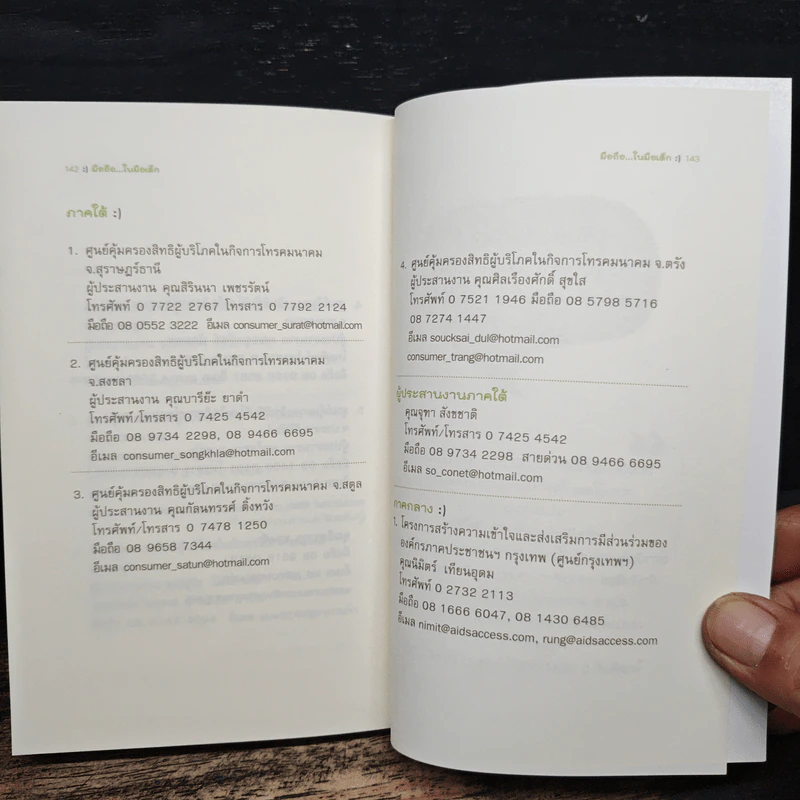 142 :) มือถือ...ในมือเด็ก
ภาคใต้ :)
1. ศูนย์คุ้มครองสิทธิผู้บริโภคในกิจการโทรคมนาคม
จ.สุราษฎร์ธานี
ผู้ประสานงาน คุณสิรินนา เพชรรัตน์
โทรศัพท์ 0 7722 2767 โทรสาร 0 7792 2124
มือถือ 08 0552 3222 อีเมล consumer_surat@hotmail.com
2. ศูนย์คุ้มครองสิทธิผู้บริโภคในกิจการโทรคมนาคม
จ.สงขลา
ผู้ประสานงาน คุณบารียะ ยาดำ
โทรศัพท์/โทรสาร 0 7425 4542
มือถือ 08 9734 2298, 08 9466 6695
อีเมล consumer_songkhla@hotmail.com
3. ศูนย์คุ้มครองสิทธิผู้บริโภคในกิจการโทรคมนาคม จ.สตูล
ผู้ประสานงาน คุณกัลนทรรศ์ ติ้งหวัง
โทรศัพท์/โทรสาร 0 7478 1250
มือถือ 08 9658 7344
อีเมล consumer_satun@hotmail.com
มือถือ...ในมือเด็ก :) 143
4. ศูนย์คุ้มครองสิทธิผู้บริโภคในกิจการโทรคมนาคม จ.ตรัง
ผู้ประสานงาน คุณศิลเรืองศักดิ์ สุขใส
โทรศัพท์ 0 7521 1946 มือถือ 08 5798 5716
08 7274 1447
อีเมล soucksai_dul@hotmail.com
consumer_trang@hotmail.com
ผู้ประสานงานภาคใต้
คุณจุฑา สังขชาติ
โทรศัพท์/โทรสาร 0 7425 4542
มือถือ 08 9734 2298 สายด่วน 08 9466 6695
อีเมล so_conet@hotmail.com
ภาคกลาง :)
1. โครงการสร้างความเข้าใจและส่งเสริมการมีส่วนร่วมของ
องค์กรภาคประชาชนฯ กรุงเทพ (ศูนย์กรุงเทพฯ)
คุณนิมิตร์ เทียนอุดม
โทรศัพท์ 0 2732 2113
มือถือ 08 1666 6047, 08 1430 6485
อีเมล nimit@aidsaccess.com, rung@aidsaccess.com